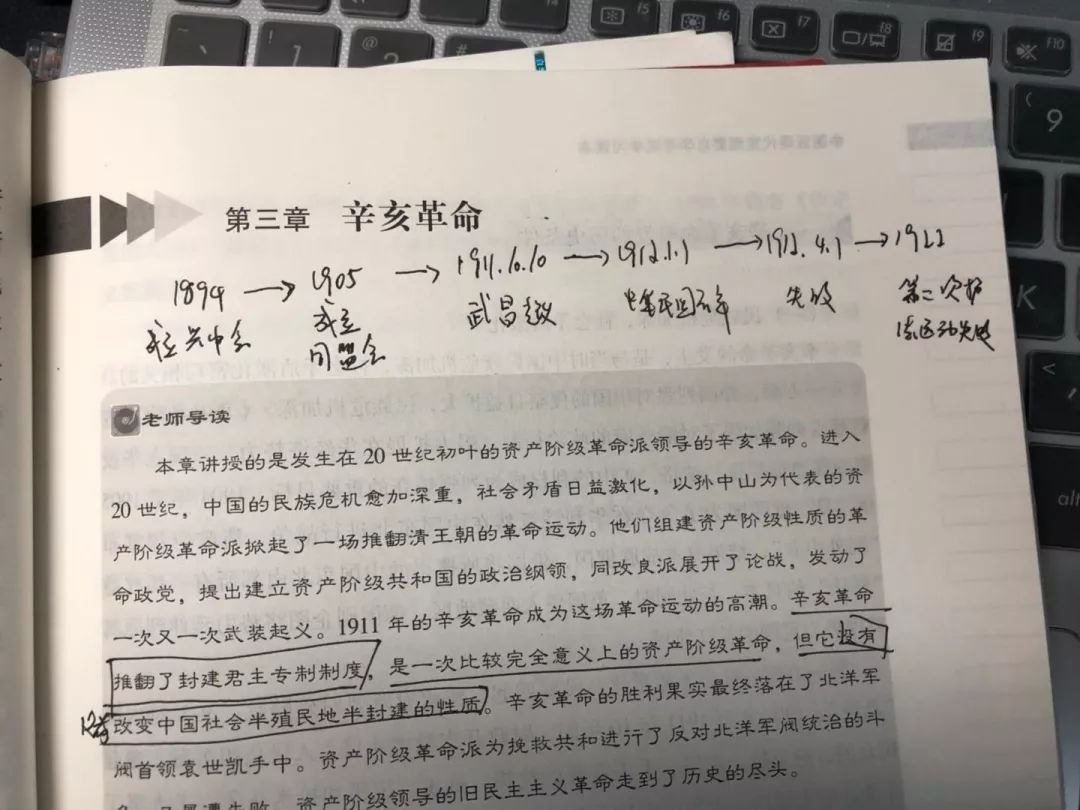 第三章 辛亥革命
1894 → 1905 → 1911.10.10 → 1912.1.1 → 1912.4.1 → 1922
成立兴中会
成立
同盟会
武昌起义
中华民国
失败
第二次护
法运动失败
老师导读
本章讲授的是发生在 20 世纪初叶的资产阶级革命派领导的辛亥革命。进入
20 世纪，中国的民族危机愈加深重，社会矛盾日益激化，以孙中山为代表的资
产阶级革命派掀起了一场推翻清王朝的革命运动。他们组建资产阶级性质的革
命政党，提出建立资产阶级共和国的政治纲领，同改良派展开了论战，发动了
一次又一次武装起义。1911 年的辛亥革命成为这场革命运动的高潮。辛亥革命
推翻了封建君主专制制度，是一次比较完全意义上的资产阶级革命，但它没有
改变中国社会半殖民地半封建的性质。辛亥革命的胜利果实最终落在了北洋军
阀首领袁世凯手中。资产阶级革命派为挽救共和进行了反对北洋军阀统治的斗
失败。资产阶级领导的旧民主主义革命走到了历史的尽头。
@
F7
F8
F10
(
9
K
<
alt